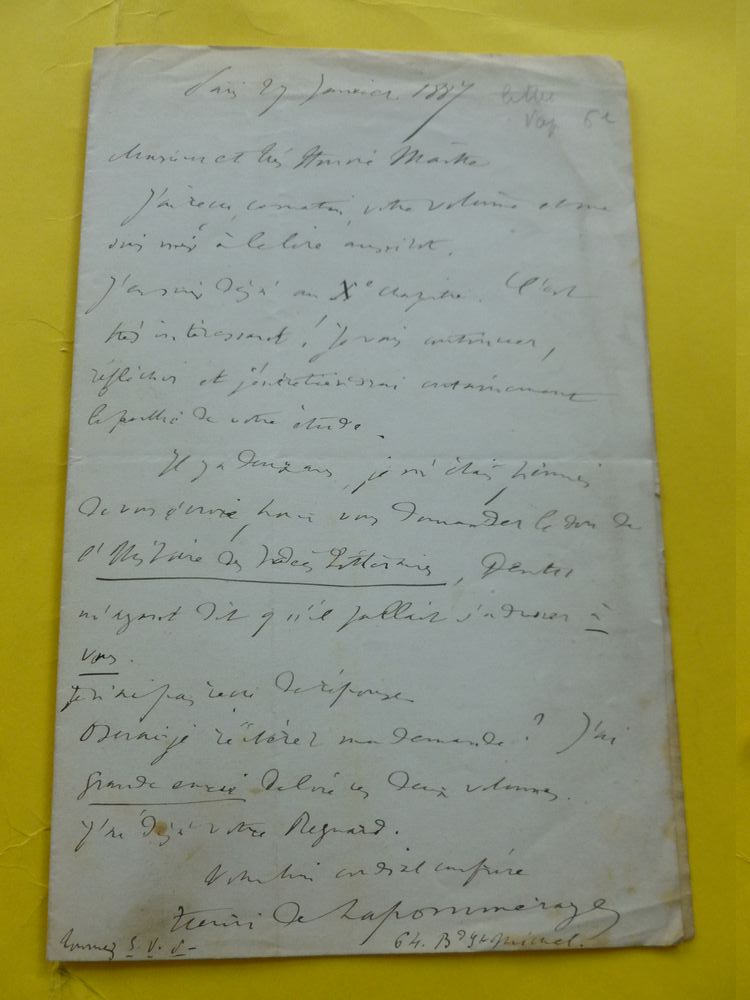 Paris 27 Janvier 1887
lettre
6
Monsieur et très Honoré Maître
J'ai reçu, ce matin, votre volume et me
suis mis à le lire aussitôt.
J'en suis déjà au Xe chapitre. C'est
très intéressant ! Je vais continuer,
réfléchir et j'entretiendrai certainement
le public de votre étude.
Il y a deux ans, je m'étais permis
de vous écrire pour vous demander le don de
l'Histoire des Idées Littéraires, Dentu
m'ayant dit qu'il fallait s'adresser à
vous.
Je n'ai pas reçu de réponse
Oserai-je réitérer ma demande ? J'ai
grande envie de lire ces deux volumes.
J'ai déjà votre Regnard.
Votre bien cordial confrère
Henri de Lapommeraye
Tournez S. V. P.
64. Bd St Michel.